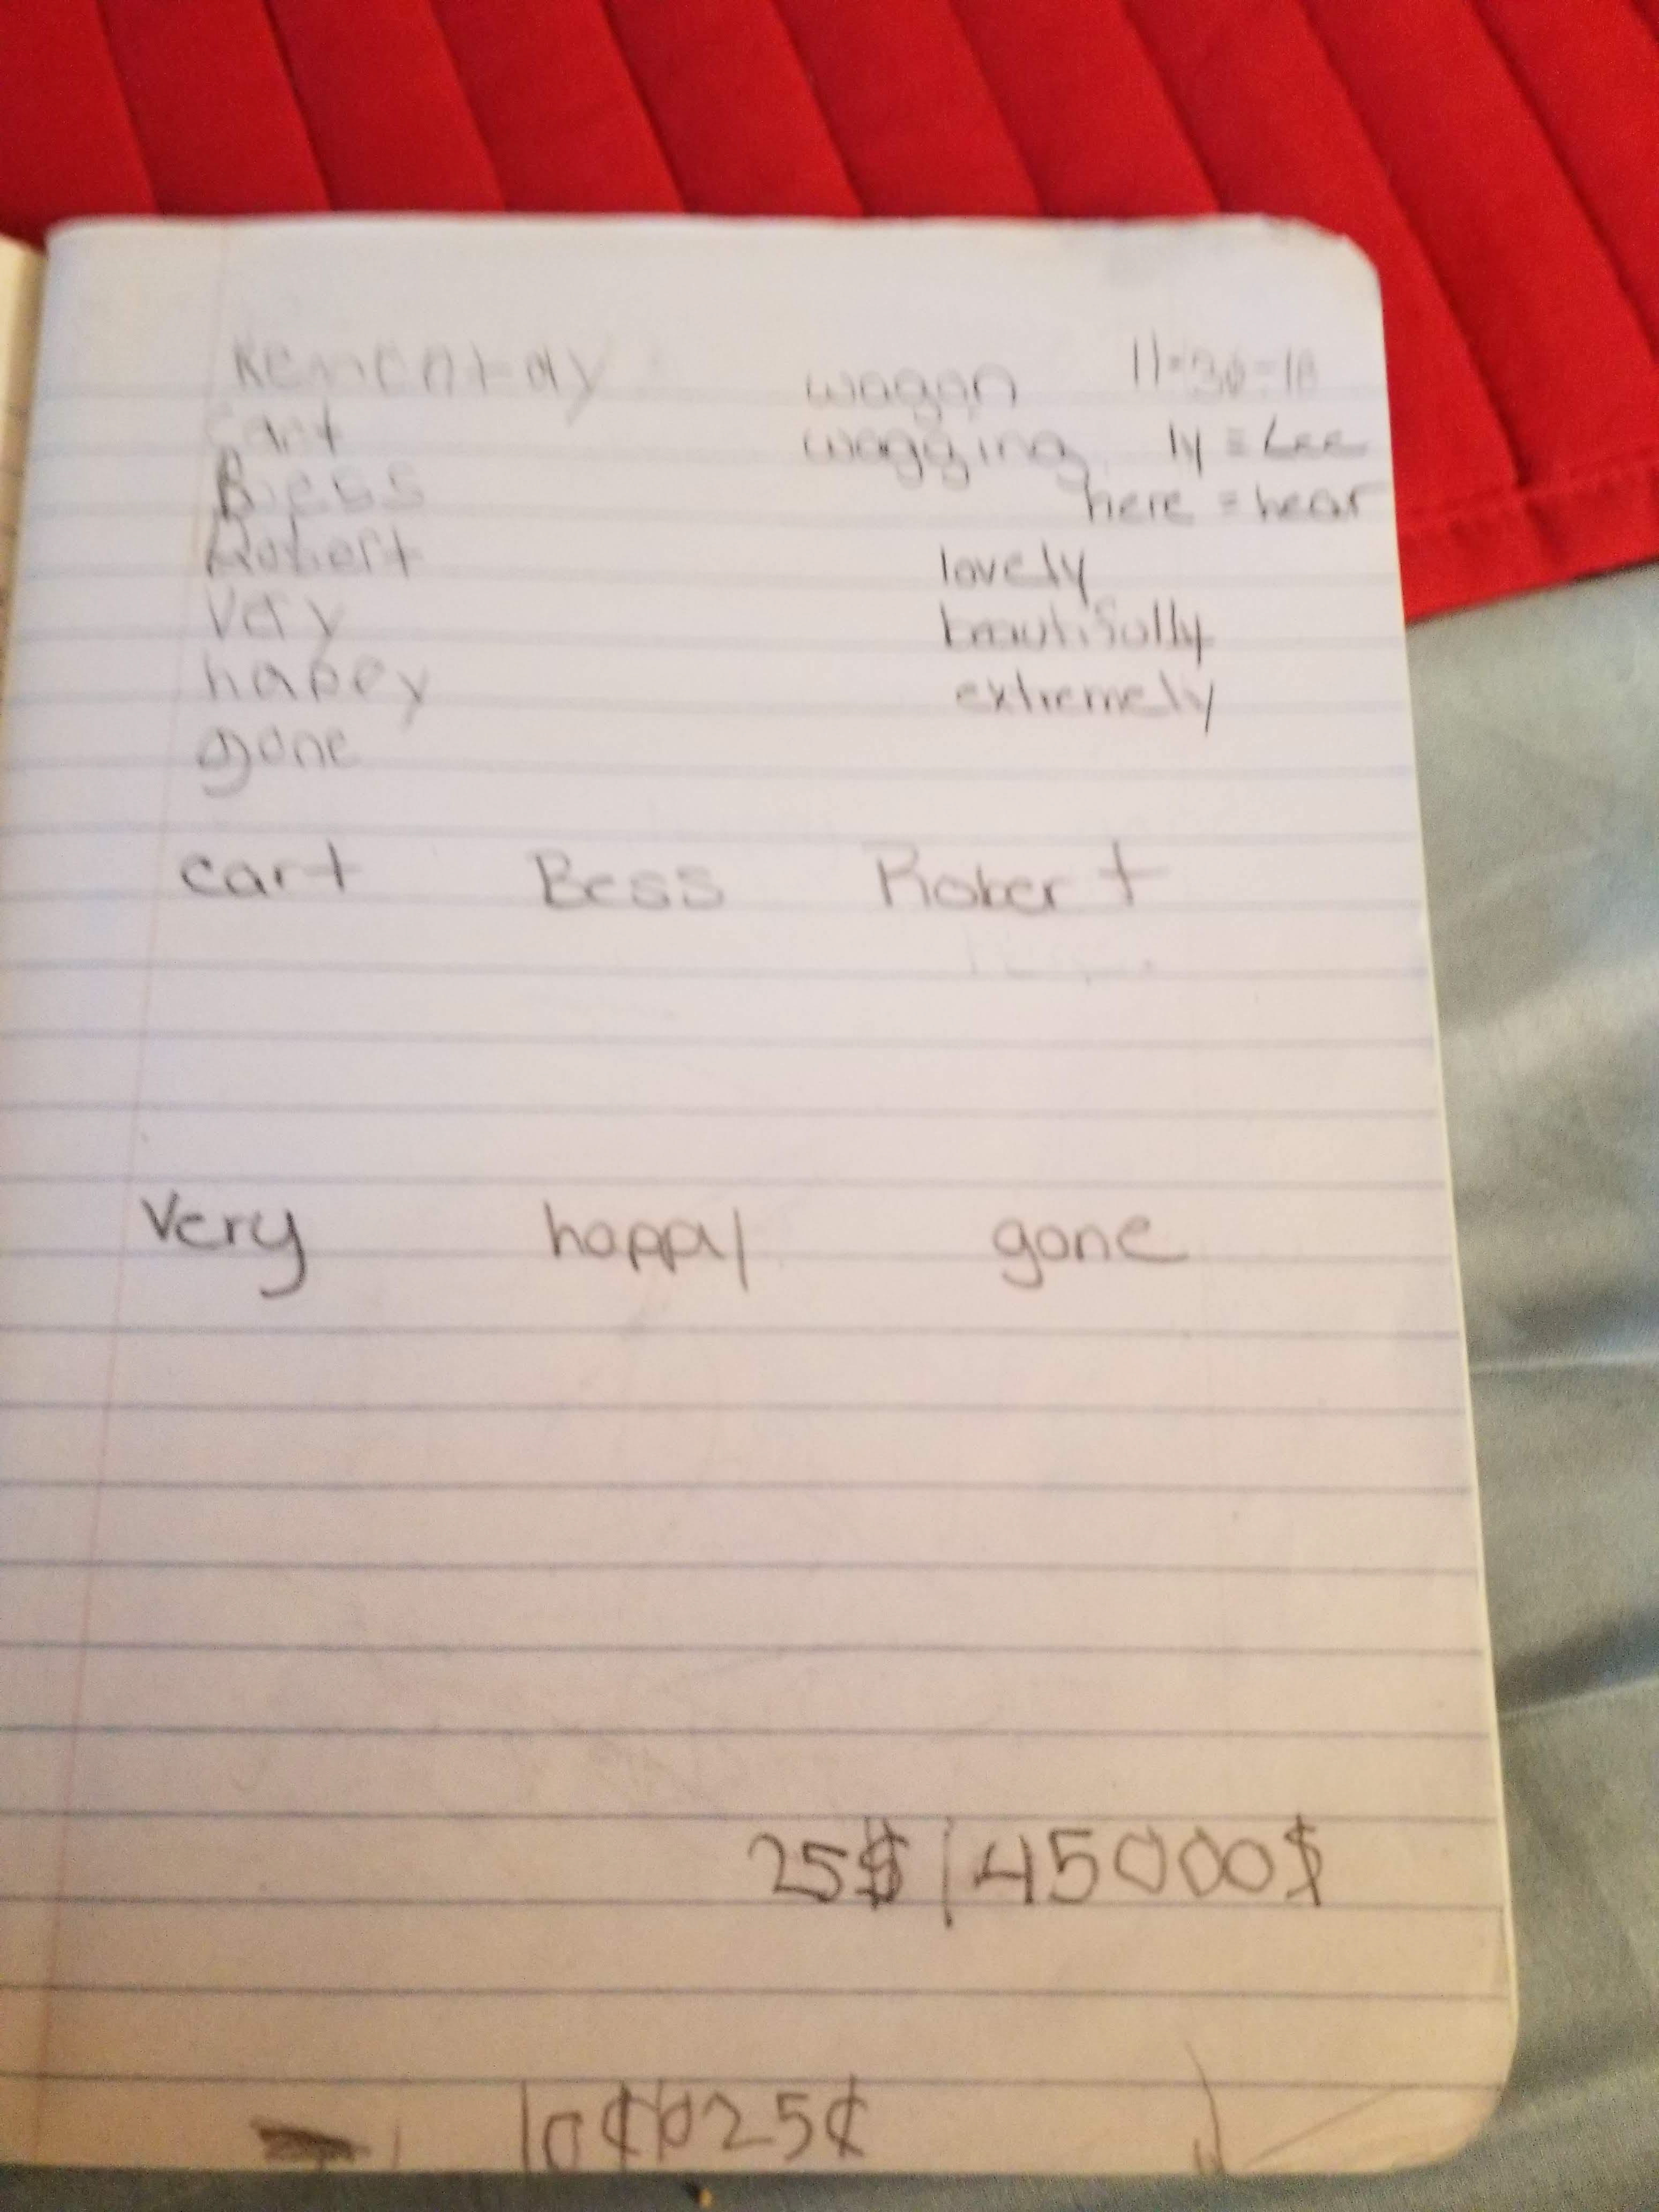 wagon 11-30-18
cart wagging ly = Lee
Bess here = hear
Robert lovely
very beautifully
happy extremely
gone
cart Bess Robert
very happy gone
25$ 45000$
10¢ 025¢